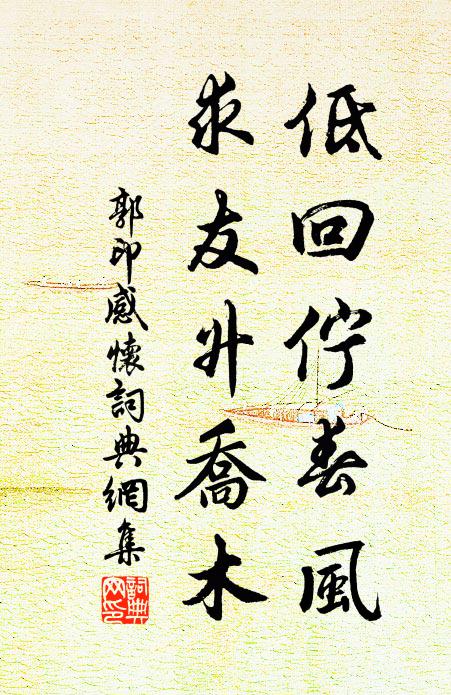 低回佇春風
求友升喬木
郭印感懷詞典網集
詞典
网印